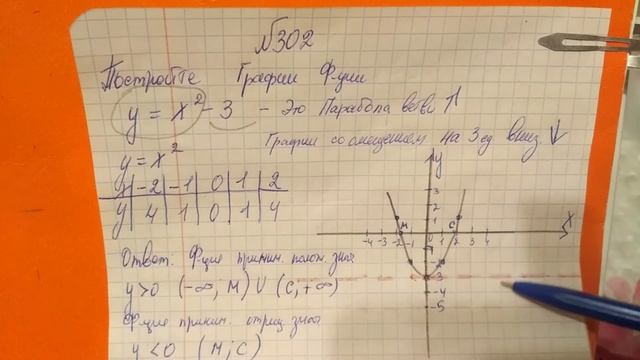 №302
Постройте График Ф-ции
y = x² - 3 - Это Парабола ветви ↑
График со смещением на 3 ед вниз ↓
y = x²
x -2 -1 0 1 2
y 4 1 0 1 4
y
3
2
1
M C X
-4 -3 -2 -1 1 2 3 4
-3
-4
-5
Ответ: Ф-ция приним. полож. знач
y>0 (-∞, M) U (C, +∞)
Ф-ция приним. отриц. знач
y<0 (M; C)